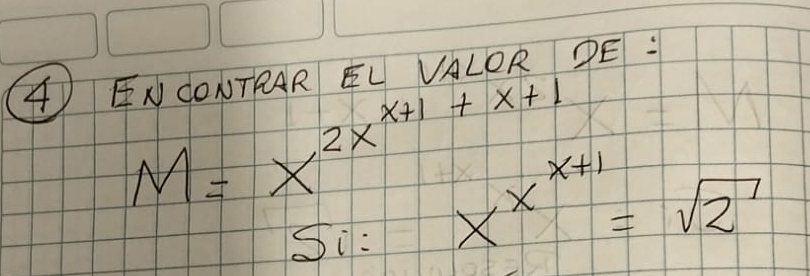 ④ ENCONTRAR EL VALOR DE:
M = x^{2x^{x+1} + x+1}
Si: x^{x^{x+1}} = √2